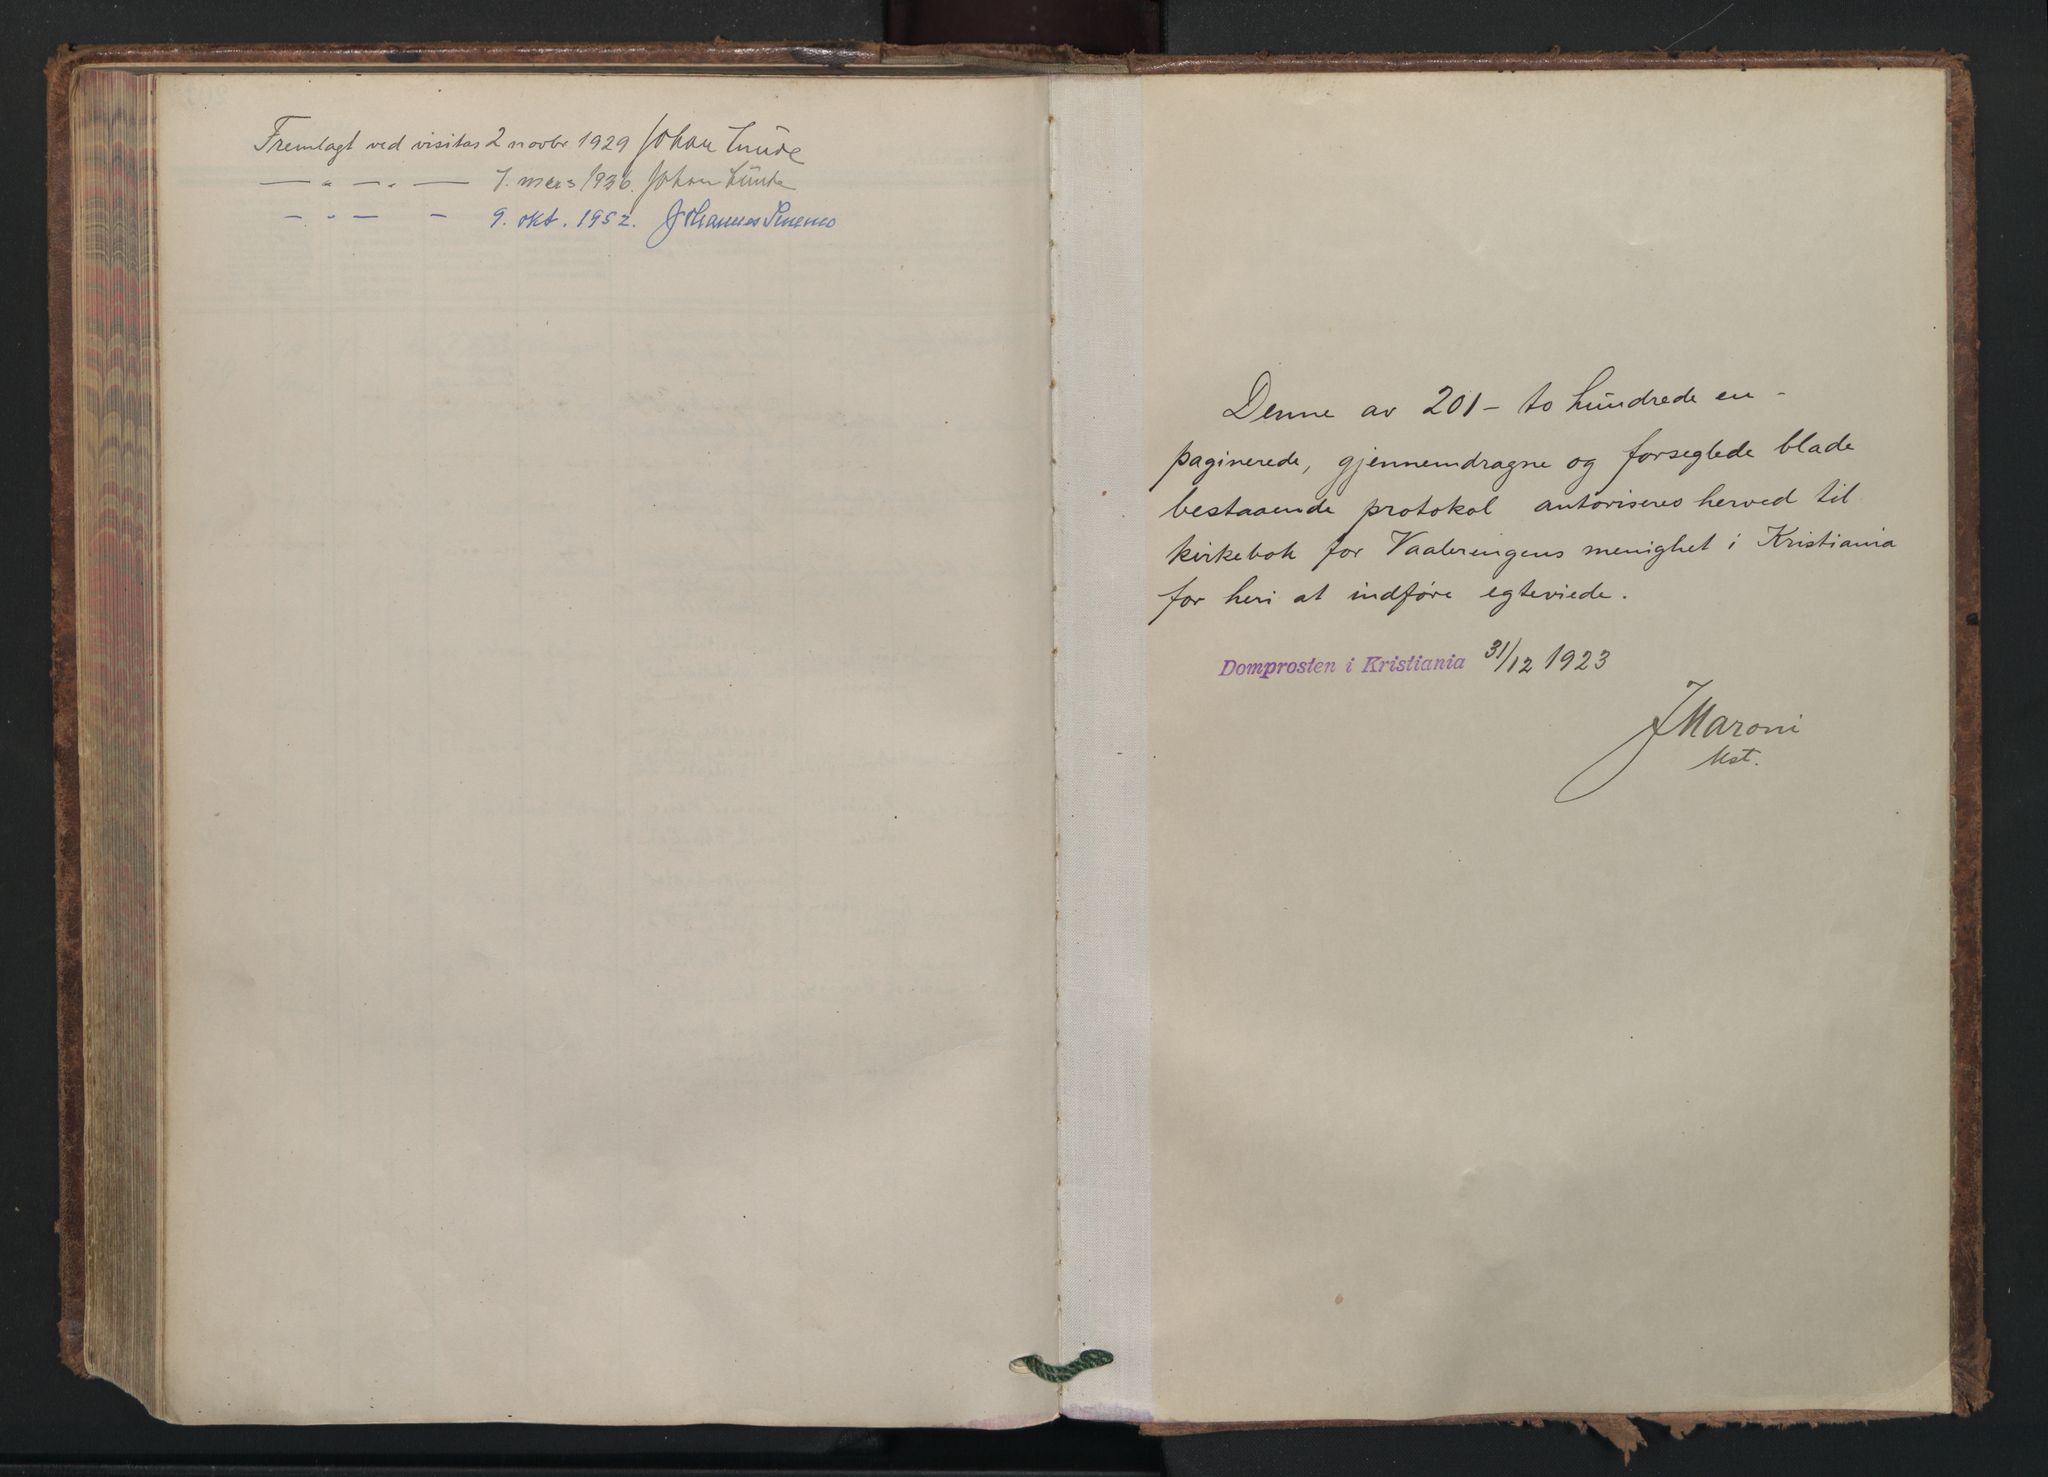 Fremlagt ved visitas 2 novbr 1929 Johan Lunde
— " — " — 7. mars 1936. Johan Lunde
— " — — 9. okt. 1952. Johannes Smemo
Denne av 201 – to hundrede en –
paginerede, gjennemdragne og forseglede blade
bestaaende protokol autoriseres herved til
kirkebok for Vaalerengens menighet i Kristiania
for heri at indføre egteviede.
Domprosten i Kristiania 31/12 1923
J Maroni
kst.